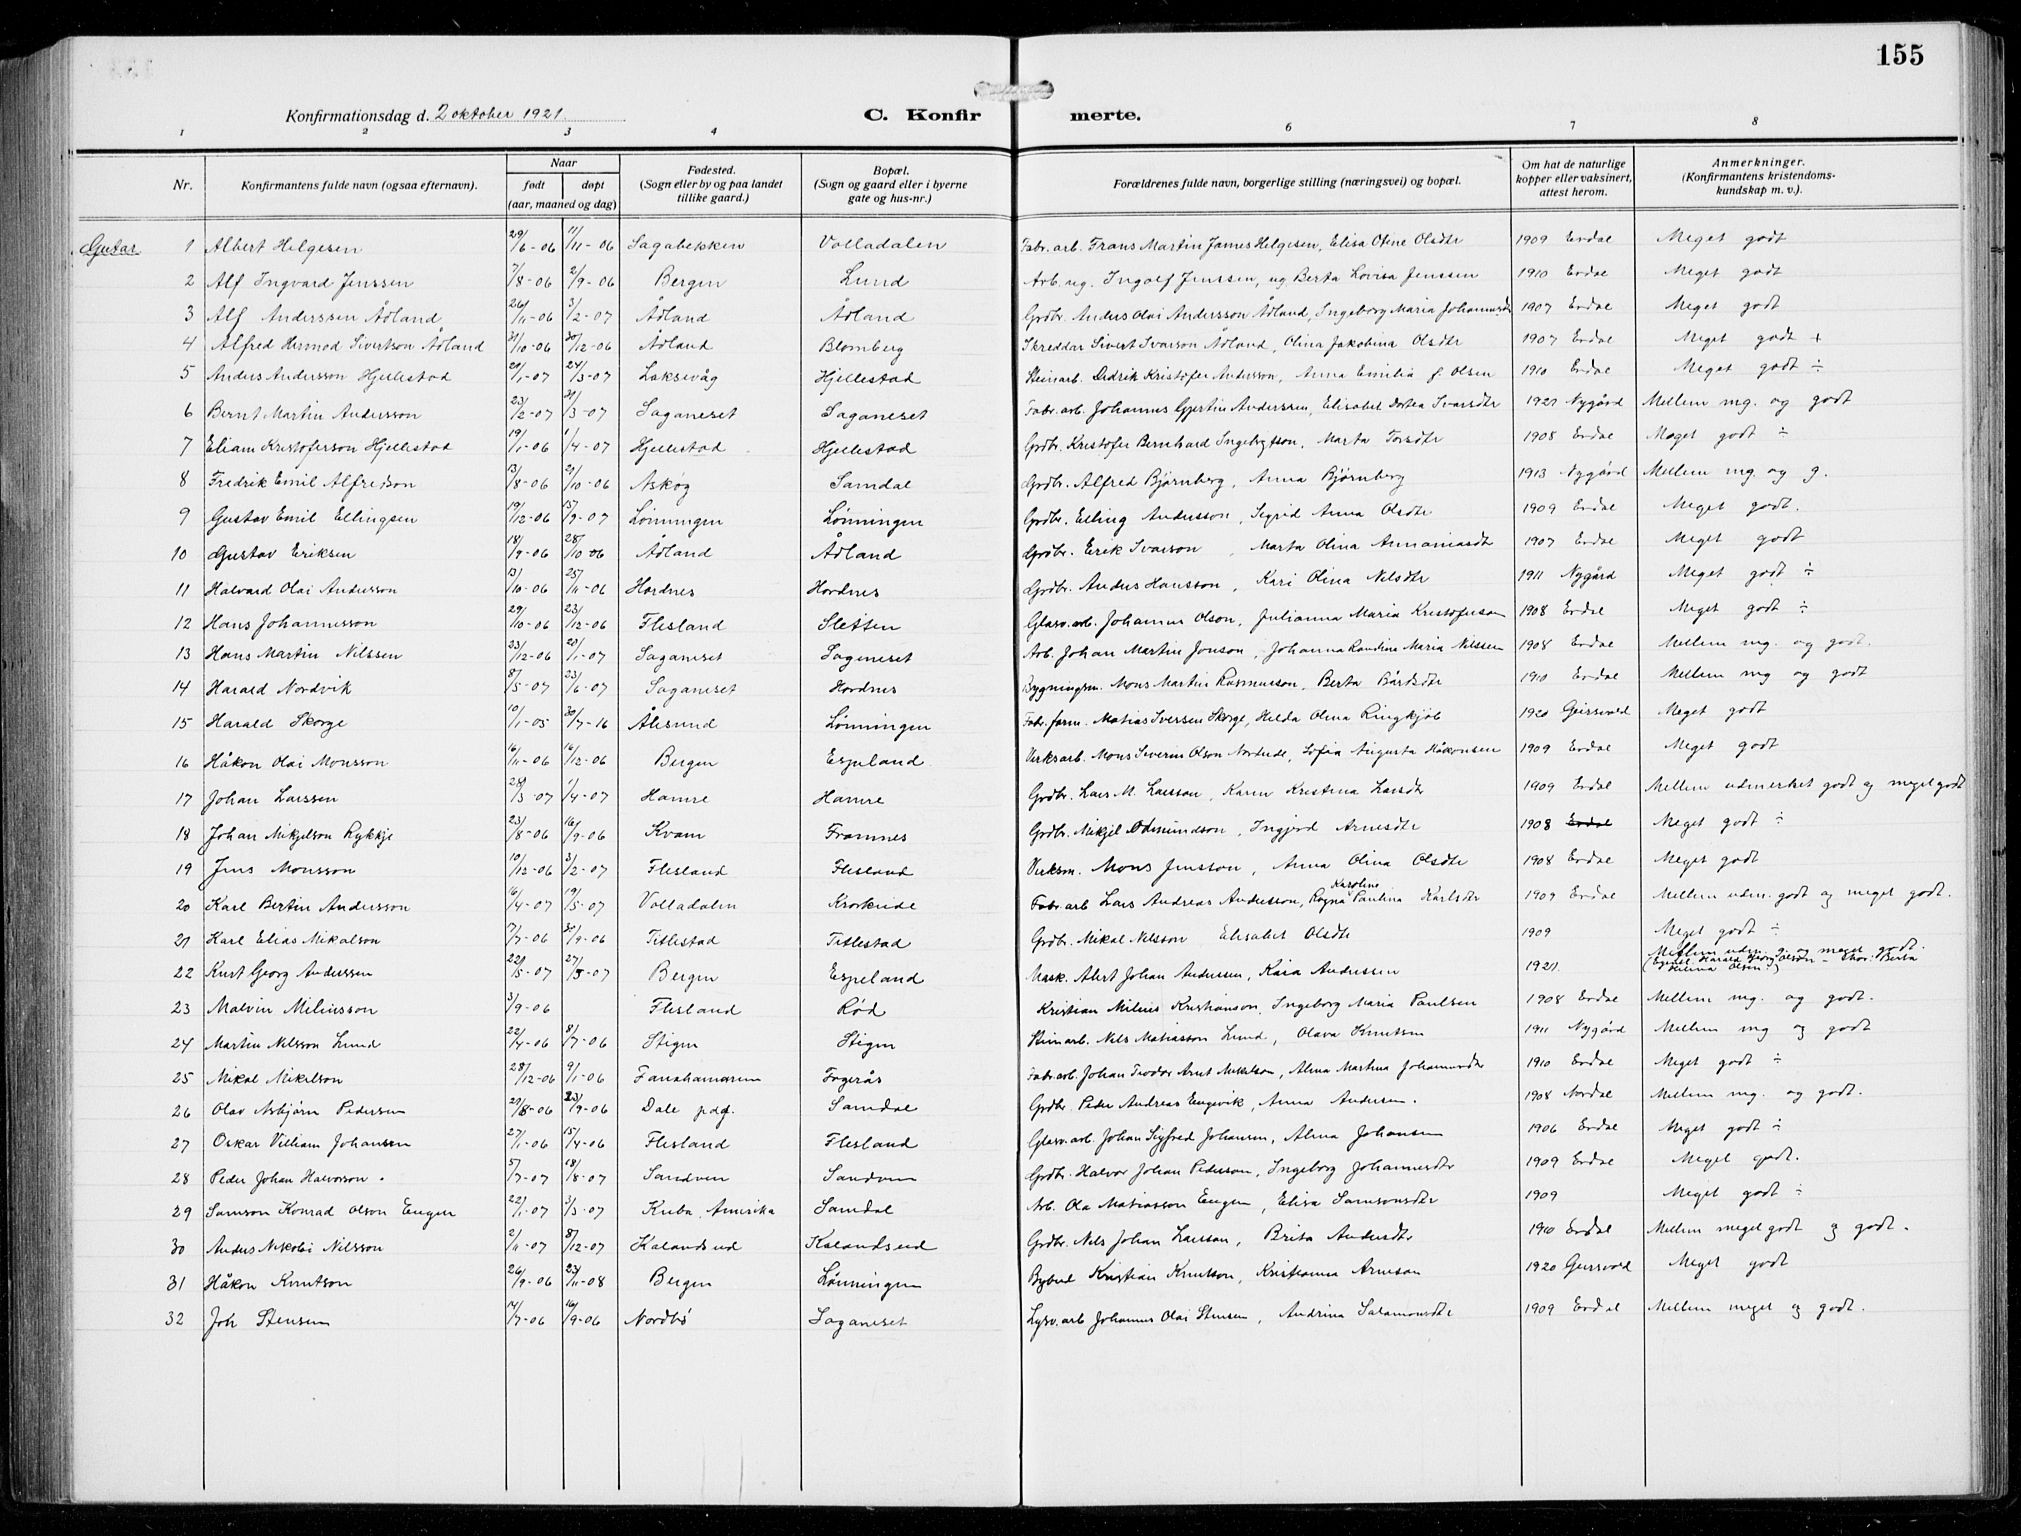 155
Konfirmationsdag d. 2 oktober 1921.
C. Konfirmerte.
1 2 3 4 6 7 8
Nr. Konfirmantens fulde navn (ogsaa efternavn). Naar født døpt (aar, maaned og dag) Fødested. (Sogn eller by og paa landet tillike gaard.) Bopæl. (Sogn og gaard eller i byerne gate og hus-nr.) Forældrenes fulde navn, borgerlige stilling (næringsvei) og bopæl. Om hat de naturlige kopper eller vaksinert, attest herom. Anmerkninger. (Konfirmantens kristendoms-kundskap m. v.).
Gutar 1 Albert Helgesen 29/6-06 11/11-06 Sagabekken Volladalen Fabr. arb. Frans Martin James Helgesen, Elisa Otine Olsdtr 1909 Erdal Meget godt
2 Alf Ingvard Jenssen 7/8-06 2/9-06 Bergen Lund Arb. Ingolf Jenssen, og Berta Lovisa Jenssen 1910 Erdal Meget godt
3 Alf Anderssen Ådland 26/11-06 3/2-07 Ådland Ådland Grdbr. Anders Olai Andersson Ådland, Ingeborg Maria Johannesdtr 1907 Erdal Meget godt
4 Alfred Hermod Sivertson Ådland 31/10-06 30/12-06 Ådland Blomberg Skreddar Sivert Ivarson Ådland, Olina Jakobina Olsdtr 1907 Erdal Meget godt +
5 Anders Andersson Hjellestad 29/1-07 24/3-07 Laksevåg Hjellestad Steinarb. Didrik Kristofer Andersson, Anna Emilia f. Olsen 1910 Erdal Meget godt ÷
6 Bernt Martin Andersson 23/2-07 31/3-07 Saganeset Saganeset Fabr. arb. Johannes Gjertin Anderssen, Elisabet Dortea Ivarsdtr 1921 Nygård Mellem mg. og godt
7 Eliam Kristoferson Hjellestad 19/1-06 1/4-07 Hjellestad Hjellestad Grdbr. Kristofer Bernhard Ingebrgtson, Marta Torsdtr 1908 Erdal Meget godt ÷
8 Fredrik Emil Alfredson 13/8-06 21/10-06 Askøy Samdal Grdbr. Alfred Bjørnberg, Anna Bjørnberg 1913 Nygård Mellem mg og g.
9 Gustav Emil Ellingsen 19/12-06 Lønningen Lønningen Grdbr. Elling Andersson, Sigrid Anna Olsdtr 1909 Erdal Meget godt.
10 Gustav Eriksen 18/9-06 28/10 06 Ådland Ådland Grdbr. Erik Ivarson, Marta Olina Annaniasdtr 1907 Erdal Meget godt
11 Halvard Olai Andersson 13/10-06 25/11-06 Hordnes Hordnes Grdbr. Anders Hansson, Kari Olina Nilsdtr 1911 Nygård Meget godt ÷
12 Hans Johannesson 29/10-06 23/12-06 Flesland Sletten Glasv. arb. Johannes Olson, Julianna Maria Kristoferson 1908 Erdal Meget godt ÷
13 Hans Martin Nilssen 23/12-06 27/1-07 Saganeset Saganeset Arb. Johan Martin Jonson, Johanna Randina Maria Nilssen 1908 Erdal Mellem mg. og godt.
14 Harald Nordvik 8/5-07 23/6-07 Saganeset Hordnes Bygningsm. Mons Martin Rasmusson, Berta Bårdsdtr 1910 Erdal Mellem mg og godt
15 Harald Skorge 10/1-05 30/7-16 Ålesund Lønningen Fabr. form. Matias Iversen Skorge, Hilda Olina Ringkjøb 1920 Meget godt
16 Håkon Olai Monsson 16/11-06 16/12-06 Bergen Espeland Verksarb. Mons Severin Olson Nordeide, Sofia Augusta Håkonsen 1909 Erdal Meget godt
17 Johan Larssen 28/3-07 1/4-07 Hamre Hamre Grdbr. Lars M. Larsson, Karen Kristina Larsdtr 1909 Erdal Mellem udmerket godt og meget godt
18 Johan Mikjelson Rykkje 23/8-06 16/9-06 Kvam Framnes Grdbr. Mikjel Odmundson, Ingjerd Arnesdtr 1908 Erdal Meget godt ÷
19 Jens Monsson 10/12-06 3/2-07 Flesland Flesland Verksm. Mons Jensson, Anna Olina Olsdtr 1908 Erdal Meget godt
20 Karl Bertin Andersson 16/4-07 19/5-07 Volladalen Krokeide Fabr. arb Lars Andreas Andersson, Ragna Karoline Paulina Karlsdtr 1909 Erdal Mellem udm. godt og meget godt.
21 Karl Elias Mikalson 7/7-06 30/9-06 Titlestad Titlestad Grdbr. Mikal Nilsson Elisabet Olsdtr 1909 Meget godt ÷
22 Kurt Georg Anderssen 22/5-07 Bergen Espeland Mask. Alert Johan Andersen, Kaia Anderssen 1921. Mellem udm. g. og meget godt. (Egentl. Harald Georg Olson - Mor: Berta Helina Olsen)
23 Malvin Miliusson 3/9-06 Flesland Rød Kristian Milius Kristianson, Ingeborg Maria Paulsen 1908 Erdal Mellem mg. og godt.
24 Martin Nilsson Lund 22/4-06 8/7-06 Stigen Stigen Steinarb. Nils Matiasson Lund, Olava Knutsen 1911 Nygård Mellem mg og godt
25 Mikal Mikelson 28/12-06 9/1-06 Fanahammeren Fagerås Fabr. arb. Johan Teodor Arnt Mikelson, Alma Martina Johannesdtr 1910 Erdal Meget godt ÷
26 Olav Asbjørn Pedersen 29/8-06 23/9-06 Dale pdg. Samdal Grdbr. Peder Andreas Engevik, Anna Andersen. 1908 Nordal Mellem mg. og godt.
27 Oskar Villiam Johansen 27/1-06 15/4-06 Flesland Flesland Glasv. arb. Johan Sigfred Johansen, Alma Johansen 1906 Erdal Meget godt ÷
28 Peder Johan Halvorson. 5/7-07 18/8-07 Sandven Sandven Grdbr. Halvor Johan Pederson, Ingeborg Johannesdtr 1909 Erdal Meget godt.
29 Samson Konrad Olson Eugen 22/1-07 3/3-07 Kuba, Amerika Samdal Arb. Ola Matiasson Eugen, Elisa Samsonsdtr 1909 Meget godt ÷
30 Anders Nikolai Nilsson 2/11-07 8/12-07 Kalandseid Kalandseid Grdbr. Nils Johan Larsson, Brita Andersdtr 1910 Erdal Mellem meget godt og godt.
31 Håkon Knutson 26/9-06 23/11-08 Bergen Lønningen Bybud Kristian Knutson, Kristianna Arneson 1920 Meget godt
32 Joh Stensen 14/7-06 16/9-06 Nordbø Saganeset Lysv. arb Johannes Olai Stensen, Andrina Salamonsdtr 1909 Erdal Mellem meget og godt.